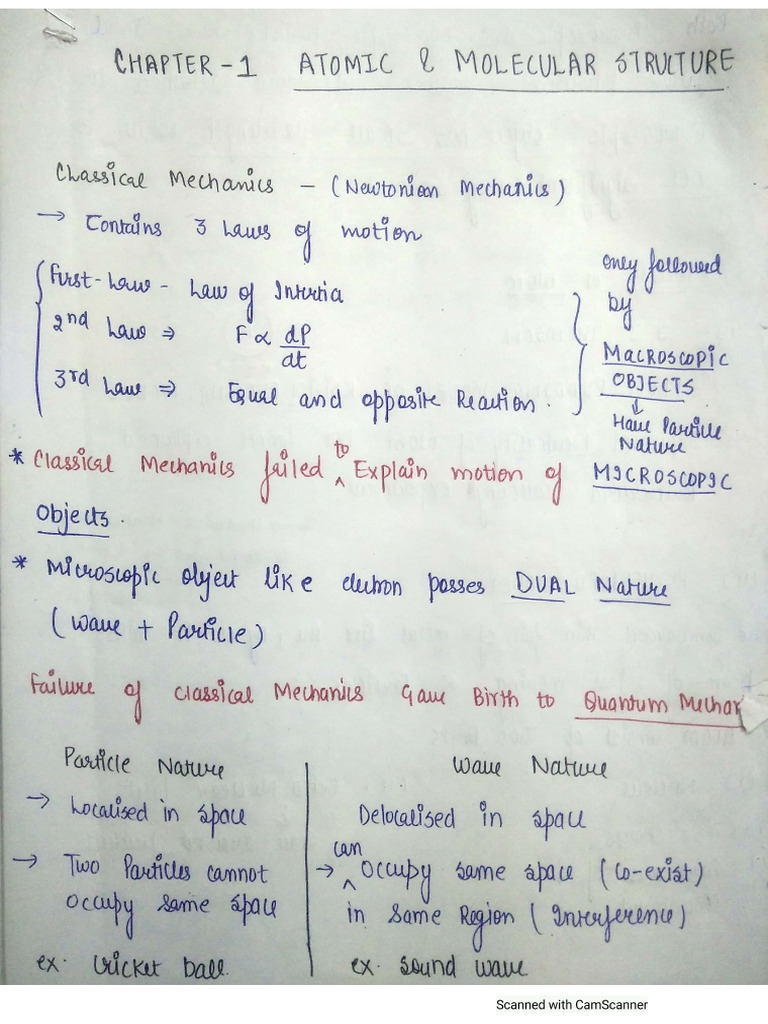 CHAPTER-1 ATOMIC & MOLECULAR STRUCTURE
Classical Mechanics - (Newtonian Mechanics)
→ Contains 3 Laws of motion
First-Law - Law of Intertia
2nd Law ⇒ F ∝ dP/dt
3rd Law ⇒ Equal and opposite Reaction.
only followed
by
MACROSCOPIC
OBJECTS
↓
Have Particle
Nature
* Classical Mechanics failed to Explain motion of MICROSCOPIC
Objects.
* Microscopic object like electron posses DUAL Nature
(wave + Particle)
Failure of Classical Mechanics Gave Birth to Quantum Mechan
Particle Nature
→ Localised in space
→ Two Particles cannot
occupy same space
ex. Cricket ball.
Wave Nature
Delocalised in space
→ can Occupy same space (co-exist)
in same Region (Interference)
ex. Sound wave
Scanned with CamScanner